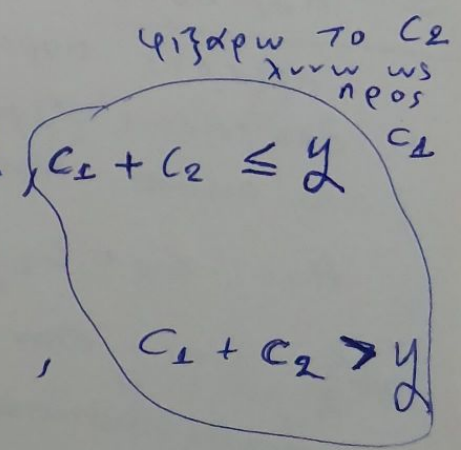 φιξαρω το C2
λυνω ως
προς
C1
C1 + C2 ≤ y
, C1 + C2 > y